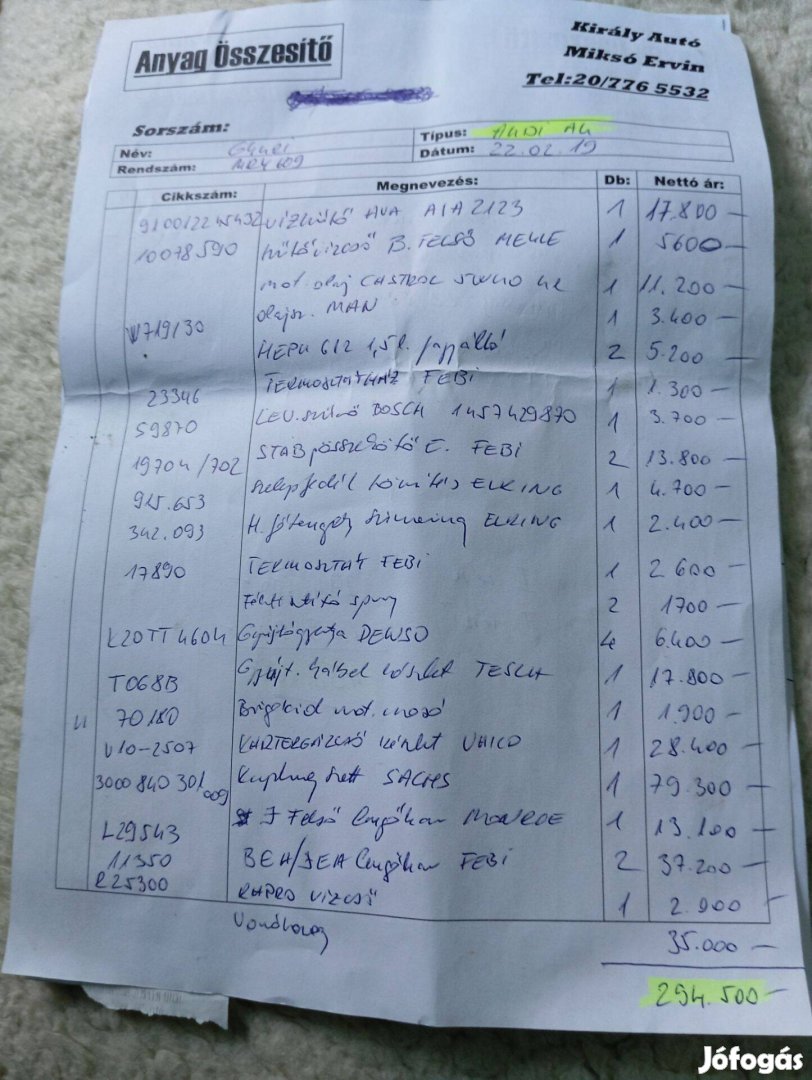 Anyag Összesítő
Király Autó
Miksó Ervin
Tel:20/776 5532
Sorszám:
Típus: AUDI A4
Név:
Dátum: 22.02.19
Rendszám:
Cikkszám: Megnevezés: Db: Nettó ár:
vízhűtő AVA AIA2123 1 17.800 —
10078590 hűtővízcső B. FELSŐ MEYLE 1 5600 —
mot. olaj CASTROL 5W40 4L 1 11.200 —
W719/30 olajsz. MAN 1 3.400 —
HEPU G12 1,5l. fagyálló 2 5.200 —
23346 TERMOSZTÁTHÁZ FEBI 1 1.300 —
59870 LEV. szűrő BOSCH 1457429870 1 3.700 —
19704/702 STAB összekötő E. FEBI 2 13.800 —
915.653 Szelepfedél tömítés ELRING 1 4.700 —
342.093 H. főtengely szimering ELRING 1 2.400 —
17890 TERMOSZTÁT FEBI 1 2600 —
2 1700 —
Gyújtógyertya DENSO 4 6.400 —
T068B Gyújt. kábel készlet TESLA 1 17.800 —
70180 mot. mosó 1 1.900 —
V10-2507 KARTERGÁZCSŐ készlet VAICO 1 28.400 —
3000 840 301/009 Kuplung szett SACHS 1 79.300 —
L29543 J Felső lengőkar MONROE 1 13.100 —
11350 BEA/JEA lengőkar FEBI 2 37.200 —
R25300 RAPRO VÍZCSŐ 1 2.900 —
Vonóhorog 35.000 —
294.500 —
Jófogás